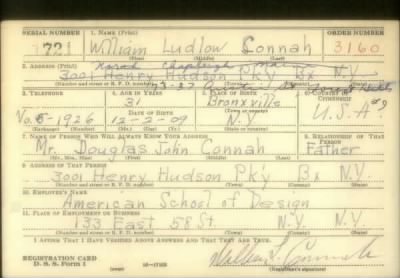 SERIAL NUMBER 1. NAME (Print) ORDER NUMBER
721 William Ludlow Connah 3160
(First) (Middle) (Last)
2. ADDRESS (Print)
3001 Henry Hudson Pky Bx N.Y.
(Number and street or R. F. D. number) (Town) (County) (State)
3. TELEPHONE 4. AGE IN YEARS 5. PLACE OF BIRTH 6. COUNTRY OF CITIZENSHIP
31 Bronxville
DATE OF BIRTH (Town or county) U.S.A.
6-1926 12-2-09 N.Y.
(Exchange) (Number) (Mo.) (Day) (Yr.) (State or country)
7. NAME OF PERSON WHO WILL ALWAYS KNOW YOUR ADDRESS 8. RELATIONSHIP OF THAT PERSON
Mr. Douglas John Connah Father
(Mr., Mrs., Miss) (First) (Middle) (Last)
9. ADDRESS OF THAT PERSON
3001 Henry Hudson Pky Bx N.Y.
(Number and street or R. F. D. number) (Town) (County) (State)
10. EMPLOYER'S NAME
American School of Design
11. PLACE OF EMPLOYMENT OR BUSINESS
133 East 58 St. N.Y. N.Y.
(Number and street or R. F. D. number) (Town) (County) (State)
I AFFIRM THAT I HAVE VERIFIED ABOVE ANSWERS AND THAT THEY ARE TRUE.
REGISTRATION CARD
D. S. S. Form 1
(over) (Registrant's signature)
William L. Connah